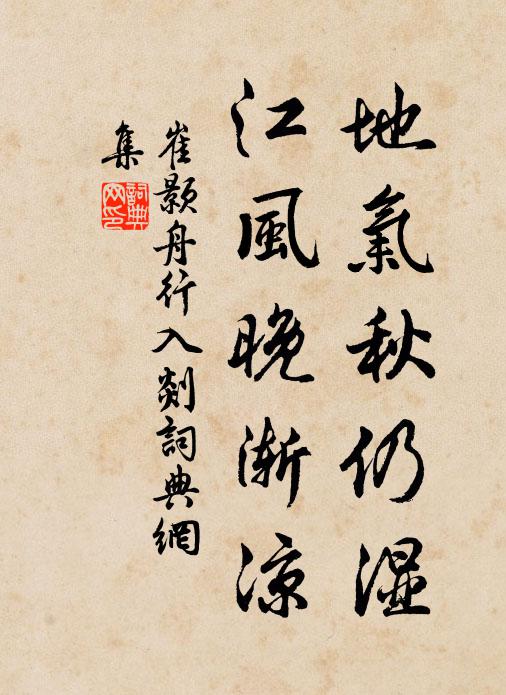 地氣秋仍濕
江風晚漸凉
崔顥舟行入剡詞典網
集
詞典
网印